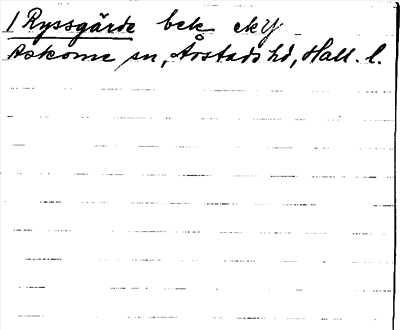 1 Ryssgärde bek ekY
Askome sn, Årstads hd, Hall. l.